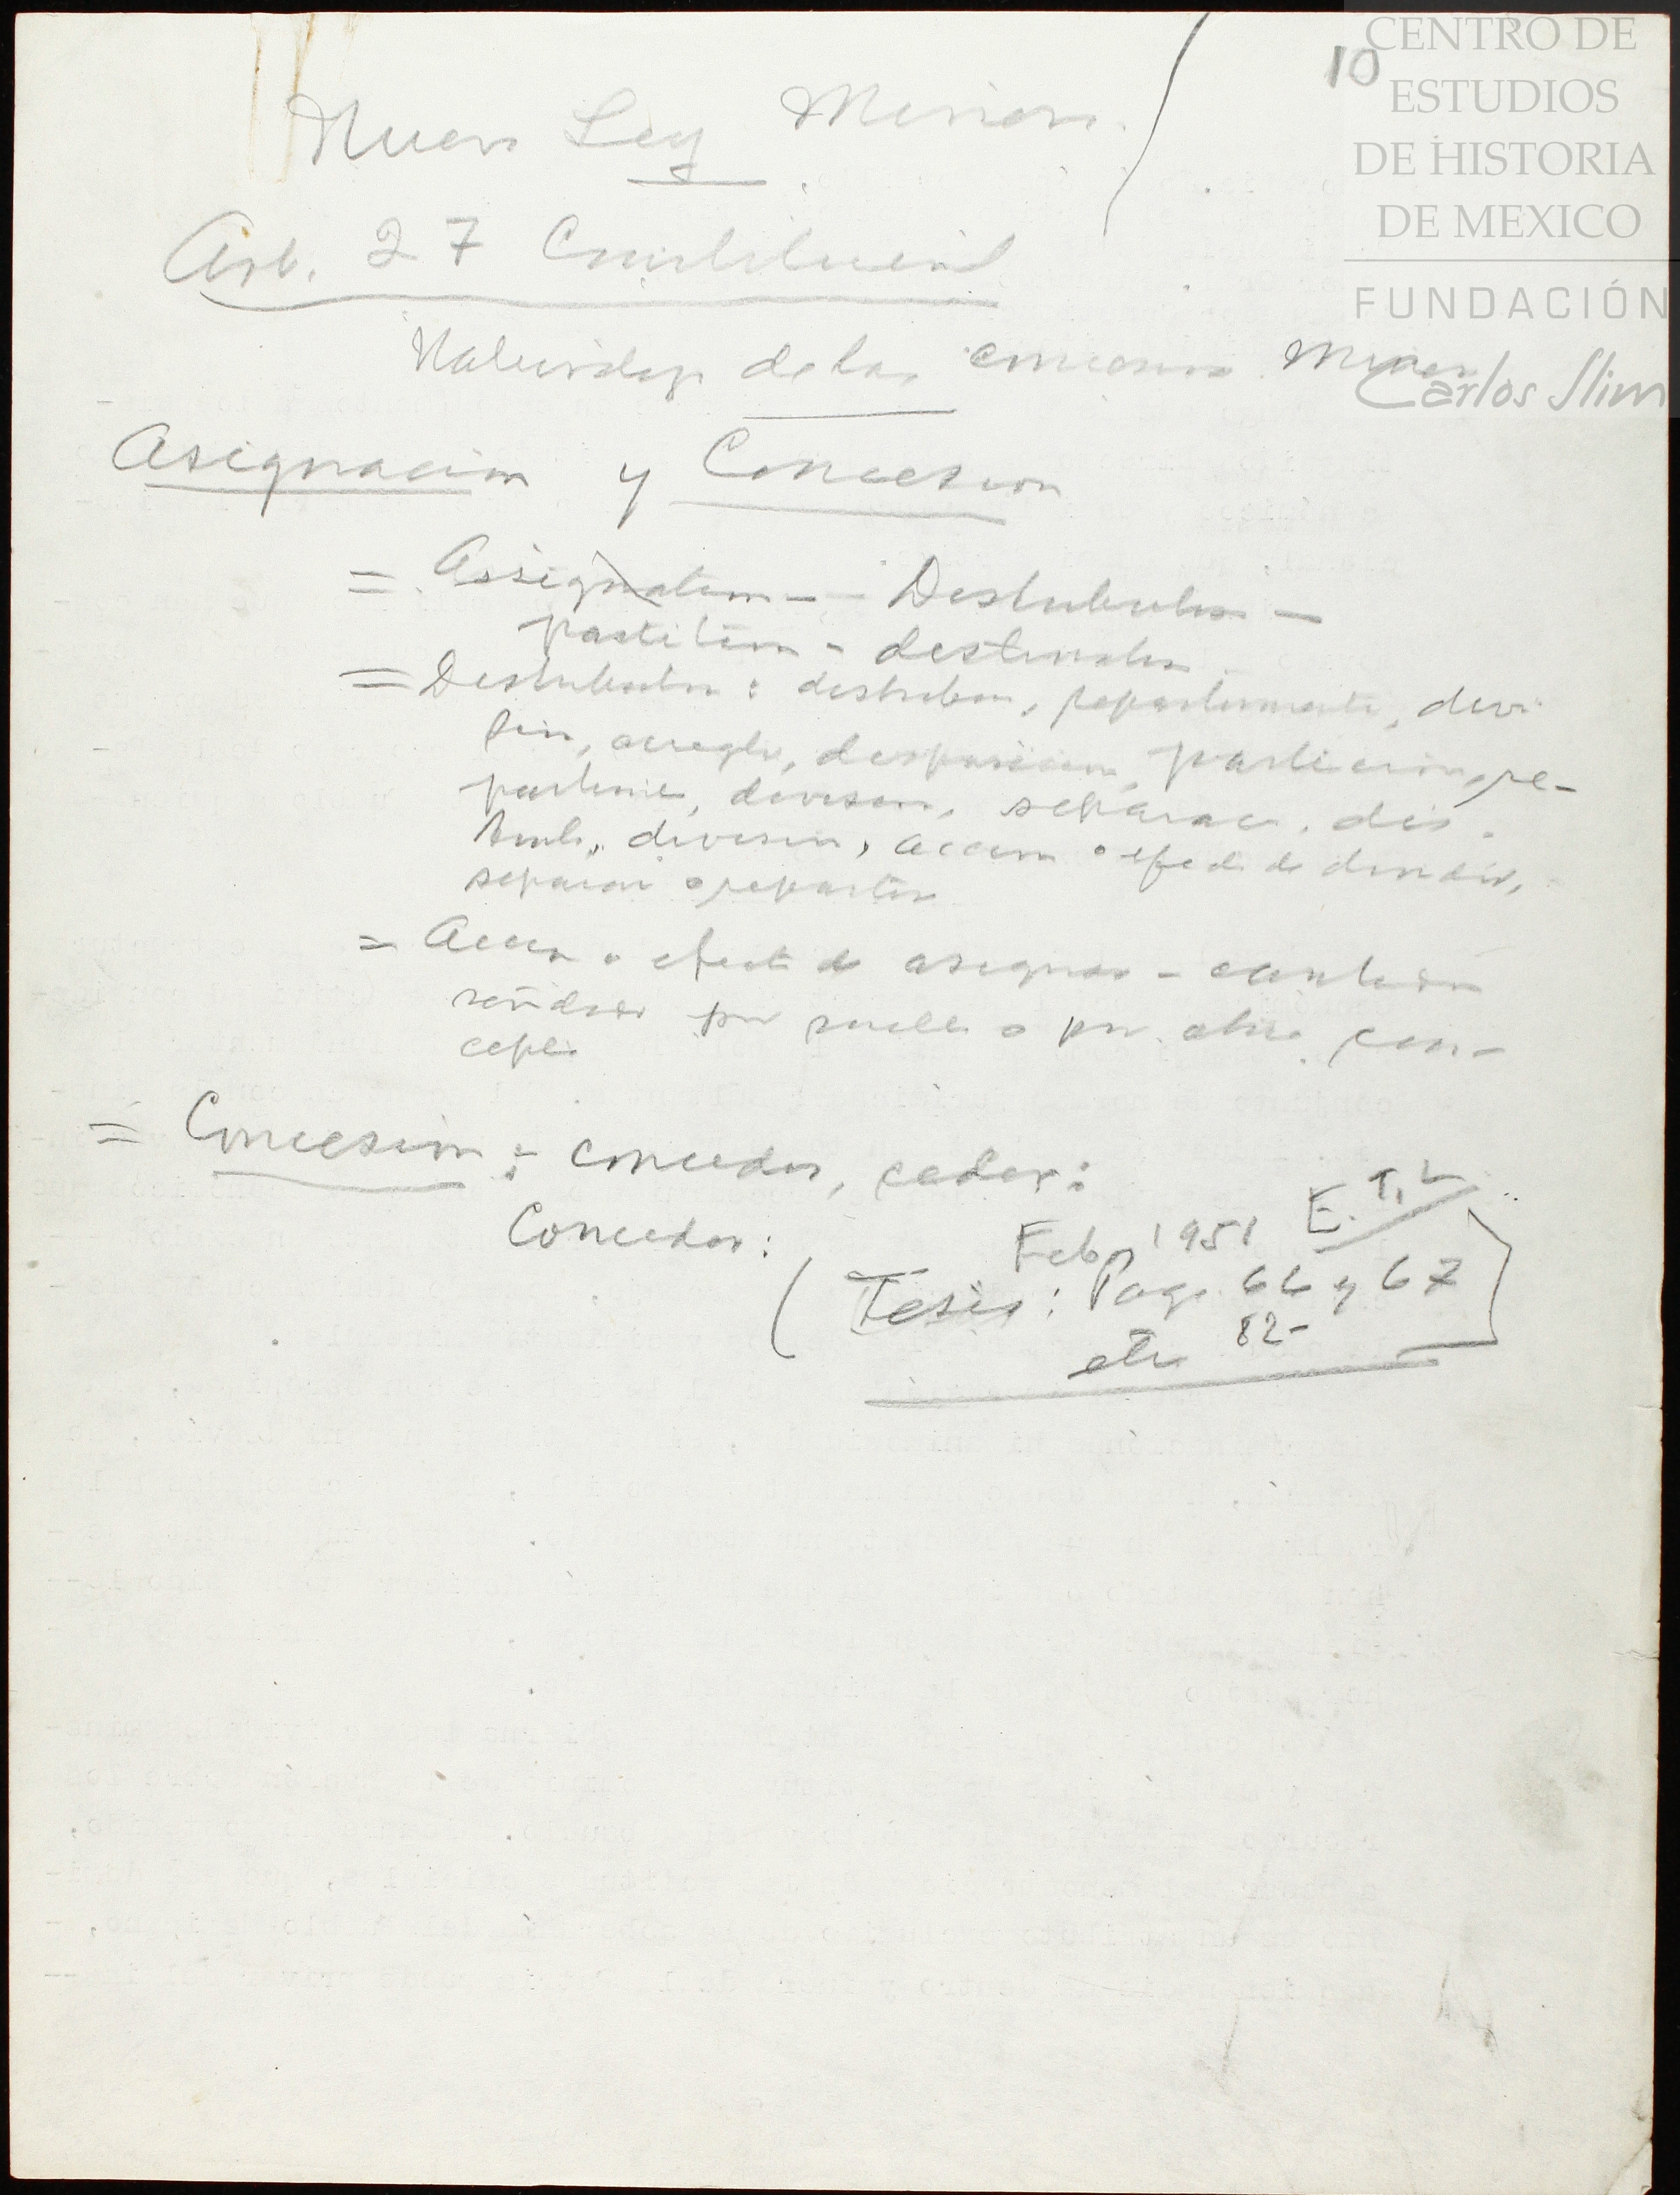 10
CENTRO DE
ESTUDIOS
DE HISTORIA
DE MEXICO
FUNDACIÓN
Carlos Slim
Nueva Ley Minera.
Art. 27 Constitucional
Naturaleza de las concesiones Mineras
Asignacion y Concesion
= Assignation - Distribution -
partition - destination
= Distribution : distribucion, repartimiento, divi-
sion, arreglo, disposicion, particion, re-
partimiento, division, separacion, dis-
division, accion o efecto de dividir,
separar o repartir
= Accion o efecto de asignar - cantidad
señalada por sueldo o por otro con-
cepto
= Concesion : conceder, ceder :
Conceder :
Feb 1951 E. T. L
( Tesis : Pags. 66 y 67
82-
etc